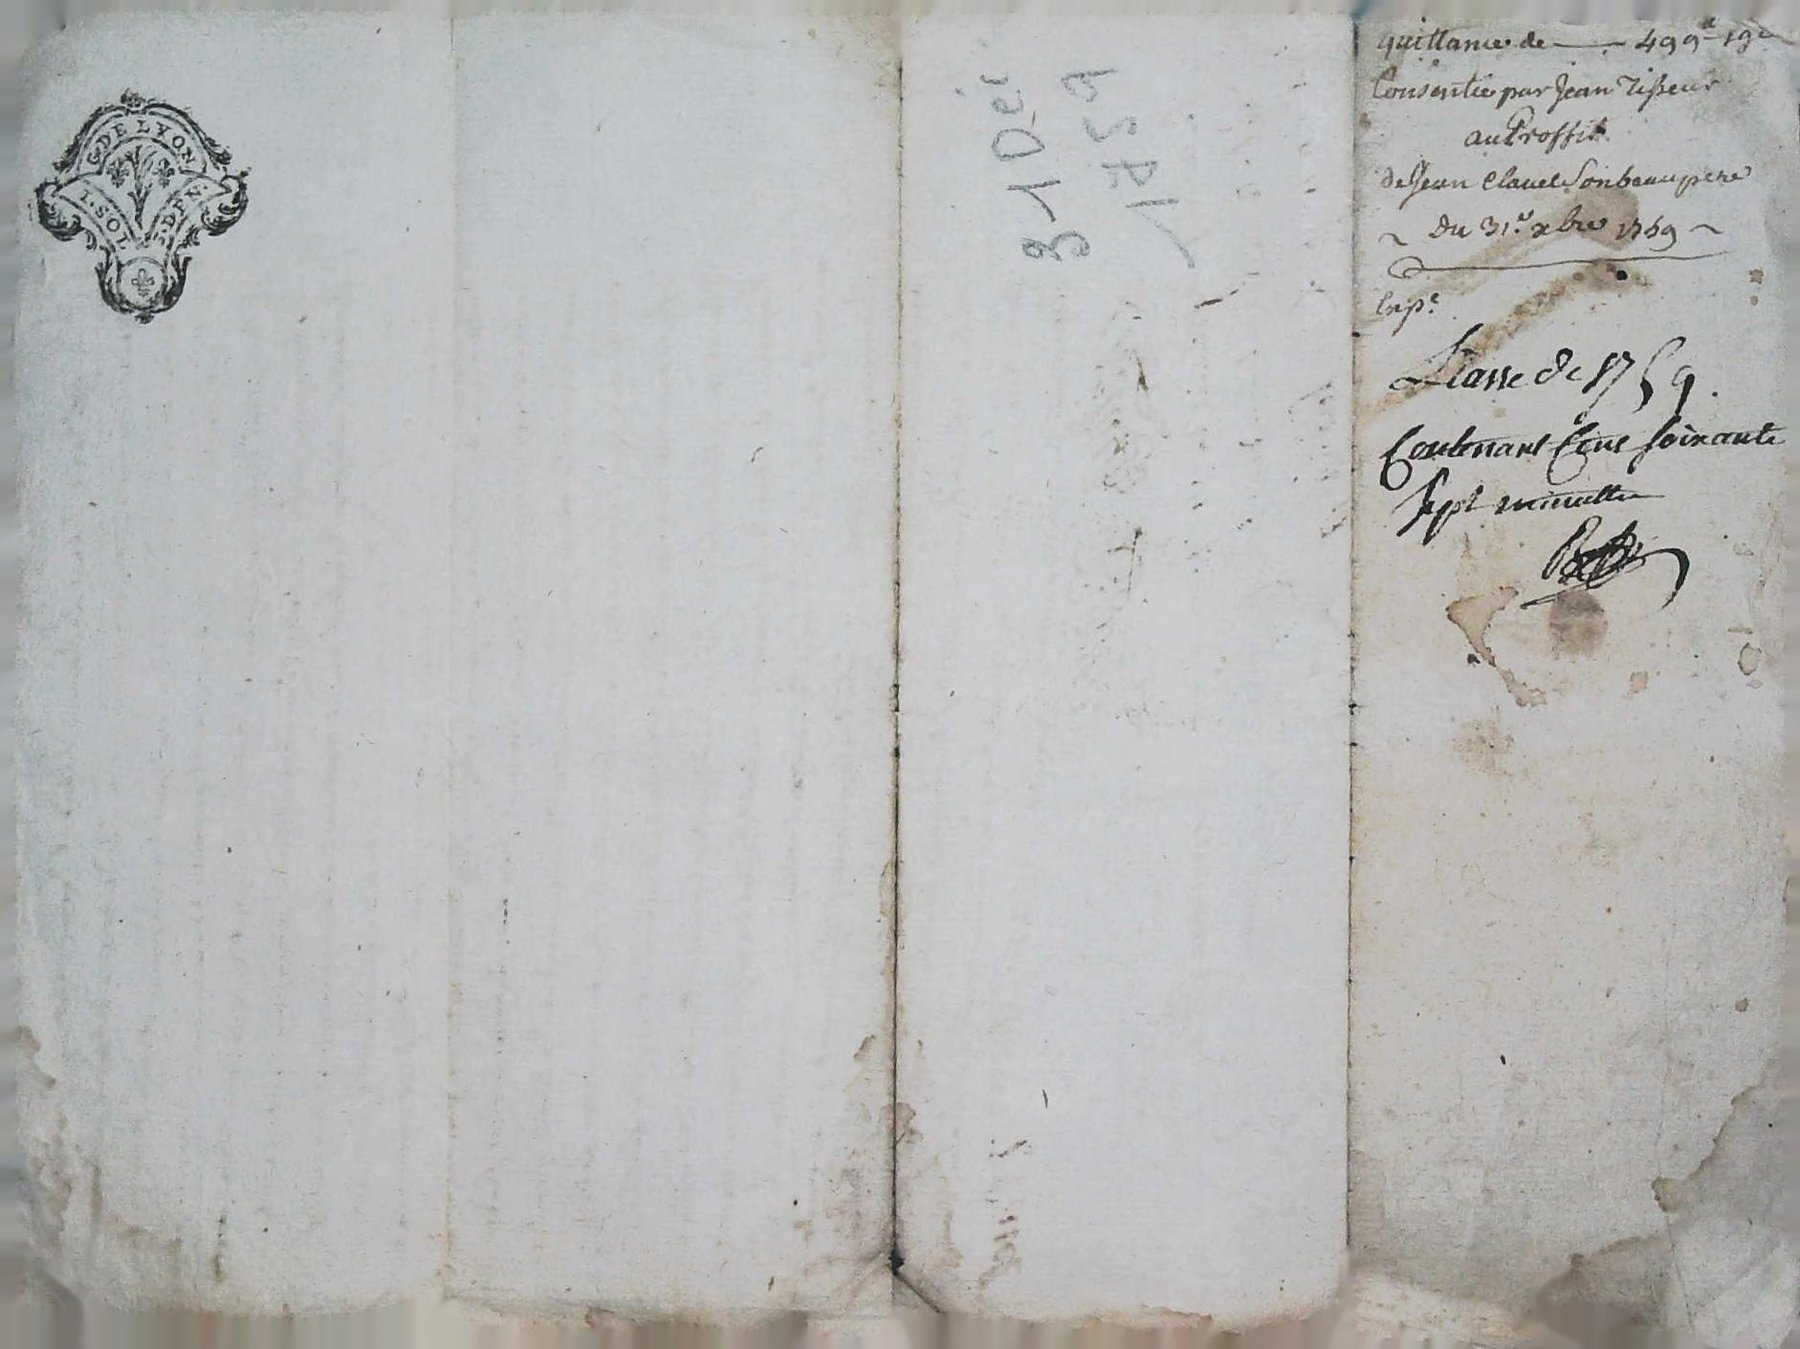 G. DE LYON
1. SOL 3. DEN.
31 Dec
1759
quittance de — 499# 19s
Consentie par Jean Tisseur
au Proffit
de Jean Clavel Son beau pere
~ du 31.e xbre 1759 ~
Exp.e
Liasse de 1759.
Contenant Cent soixante
sept minutte